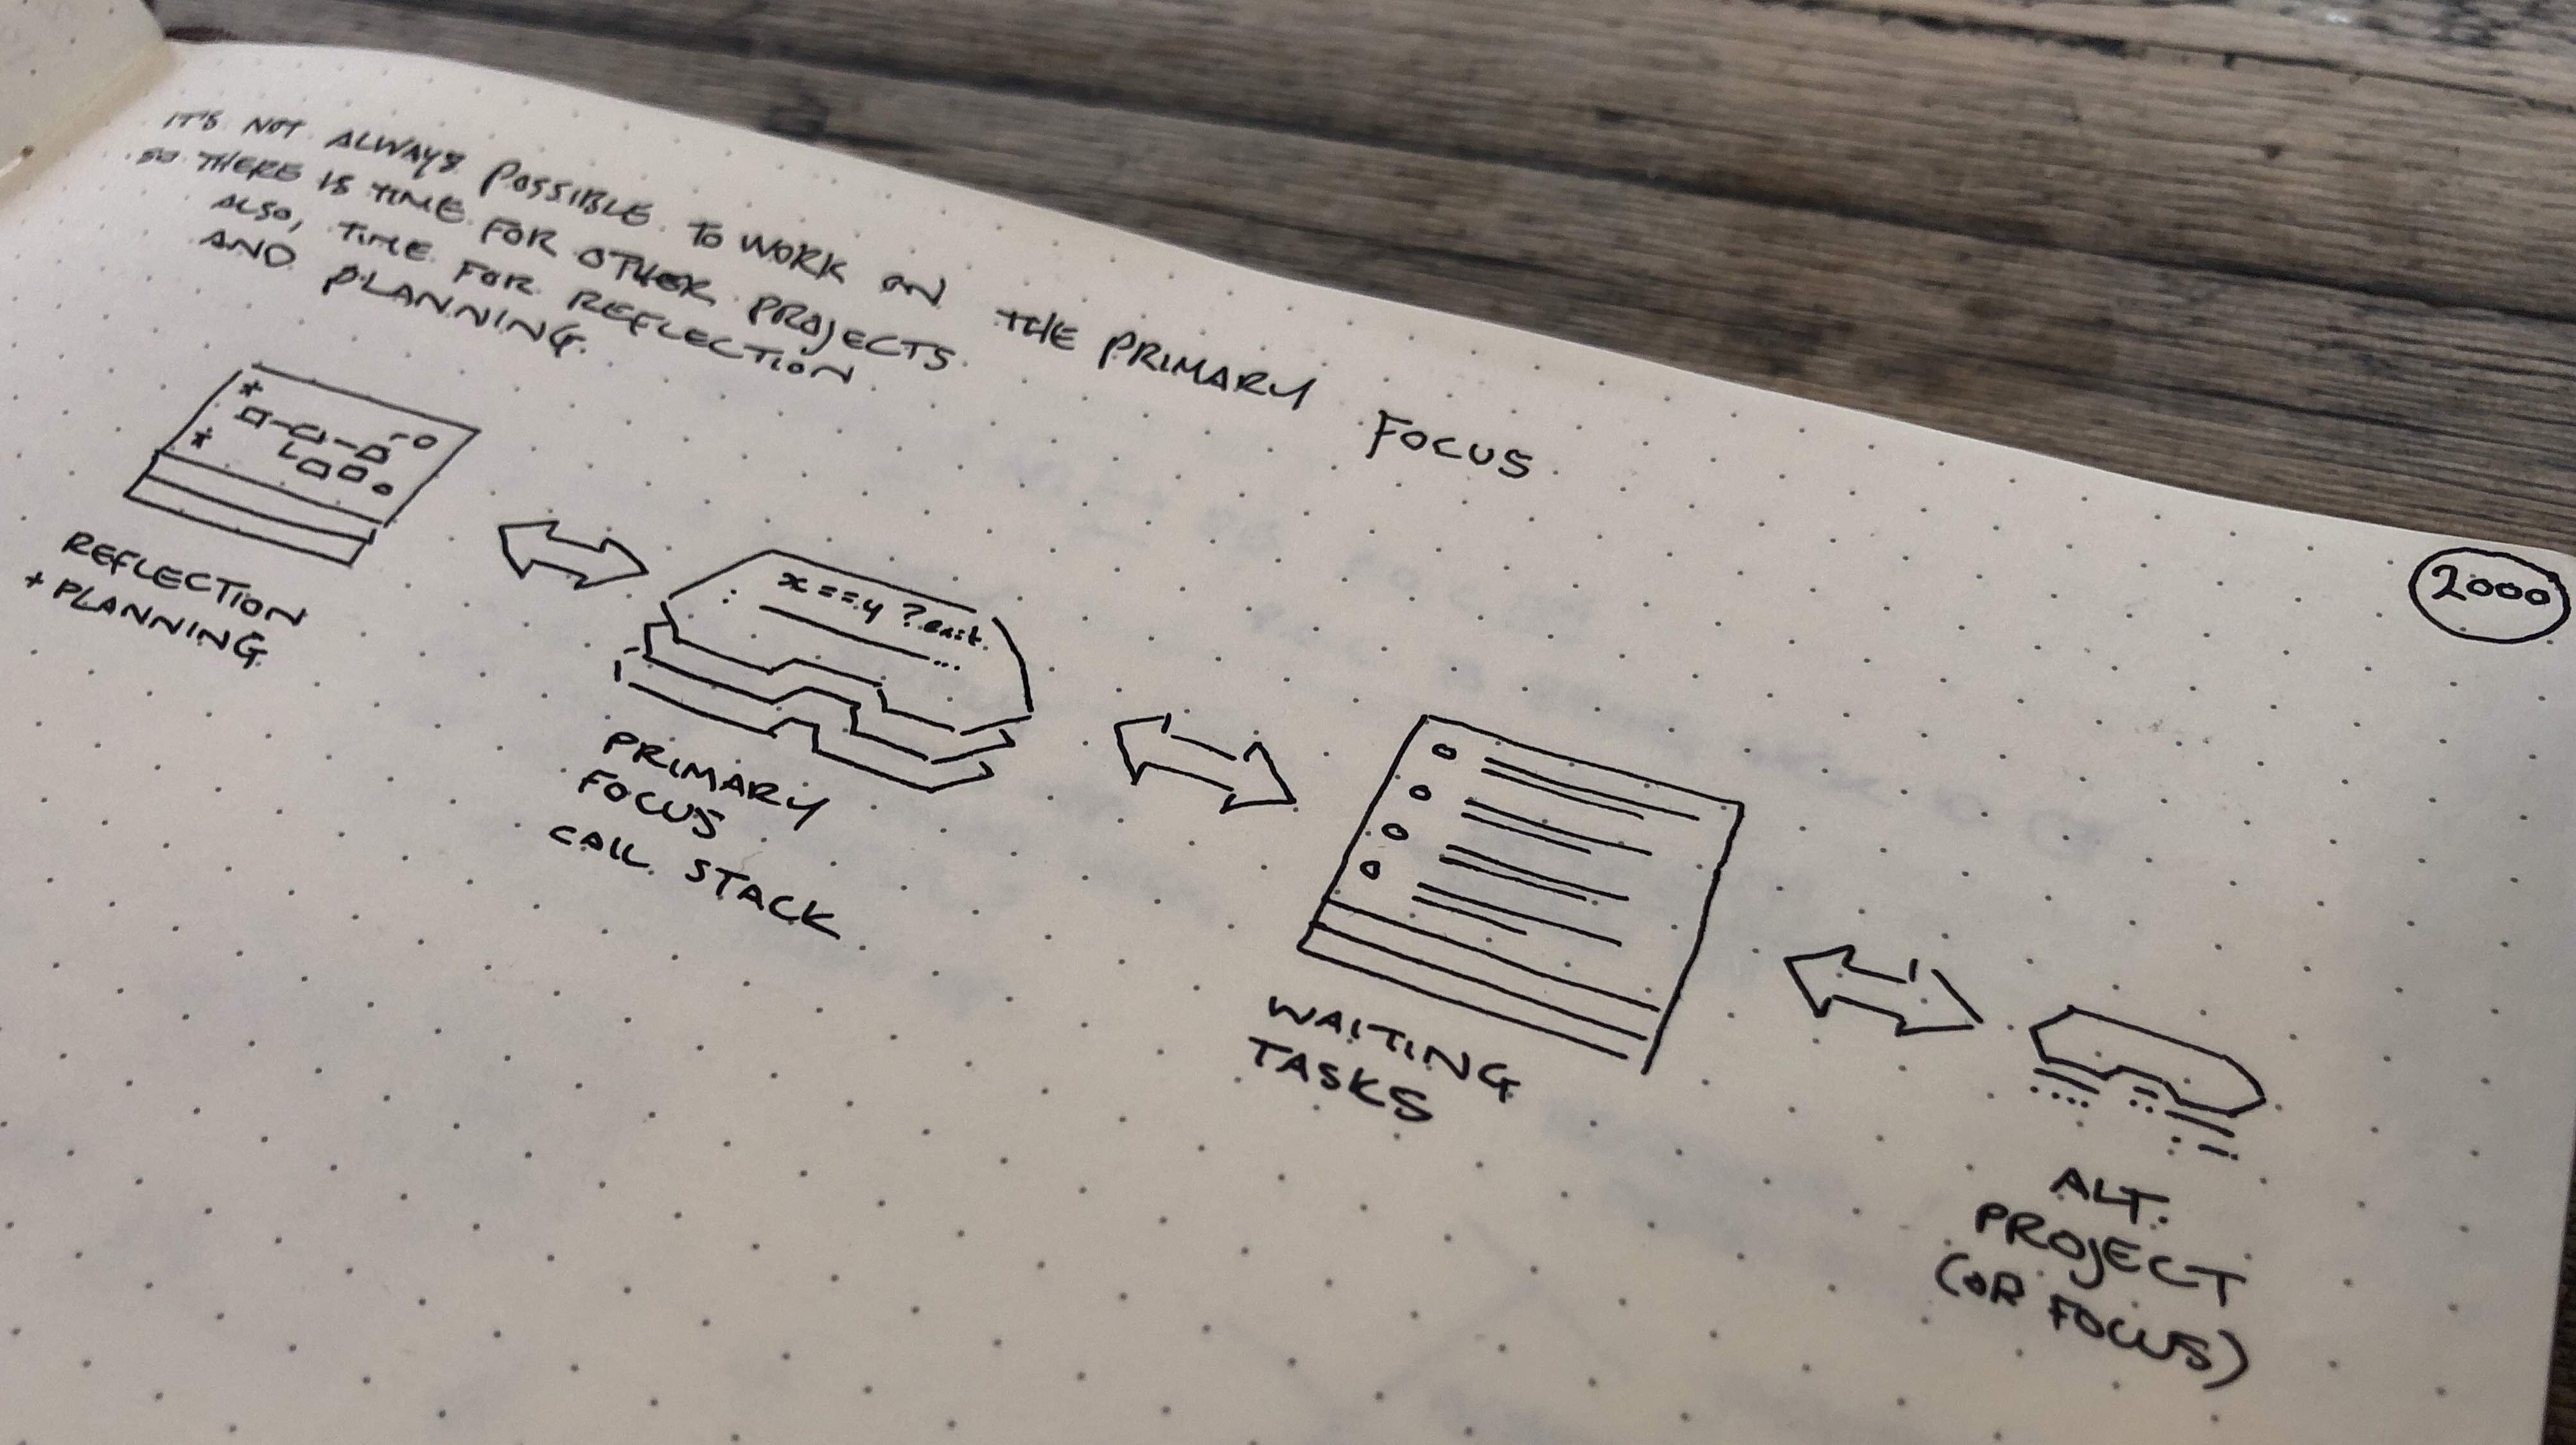 IT'S NOT ALWAYS POSSIBLE TO WORK ON THE PRIMARY FOCUS
SO THERE IS TIME FOR OTHER PROJECTS.
ALSO, TIME FOR REFLECTION
AND PLANNING.
2000
REFLECTION
+ PLANNING
x==y ?
: ...
PRIMARY
FOCUS
CALL STACK
WAITING
TASKS
ALT.
PROJECT
(OR FOCUS)